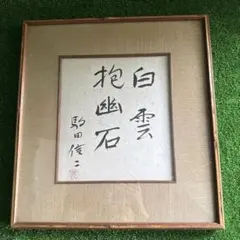 白雲
抱幽石
駒田信二